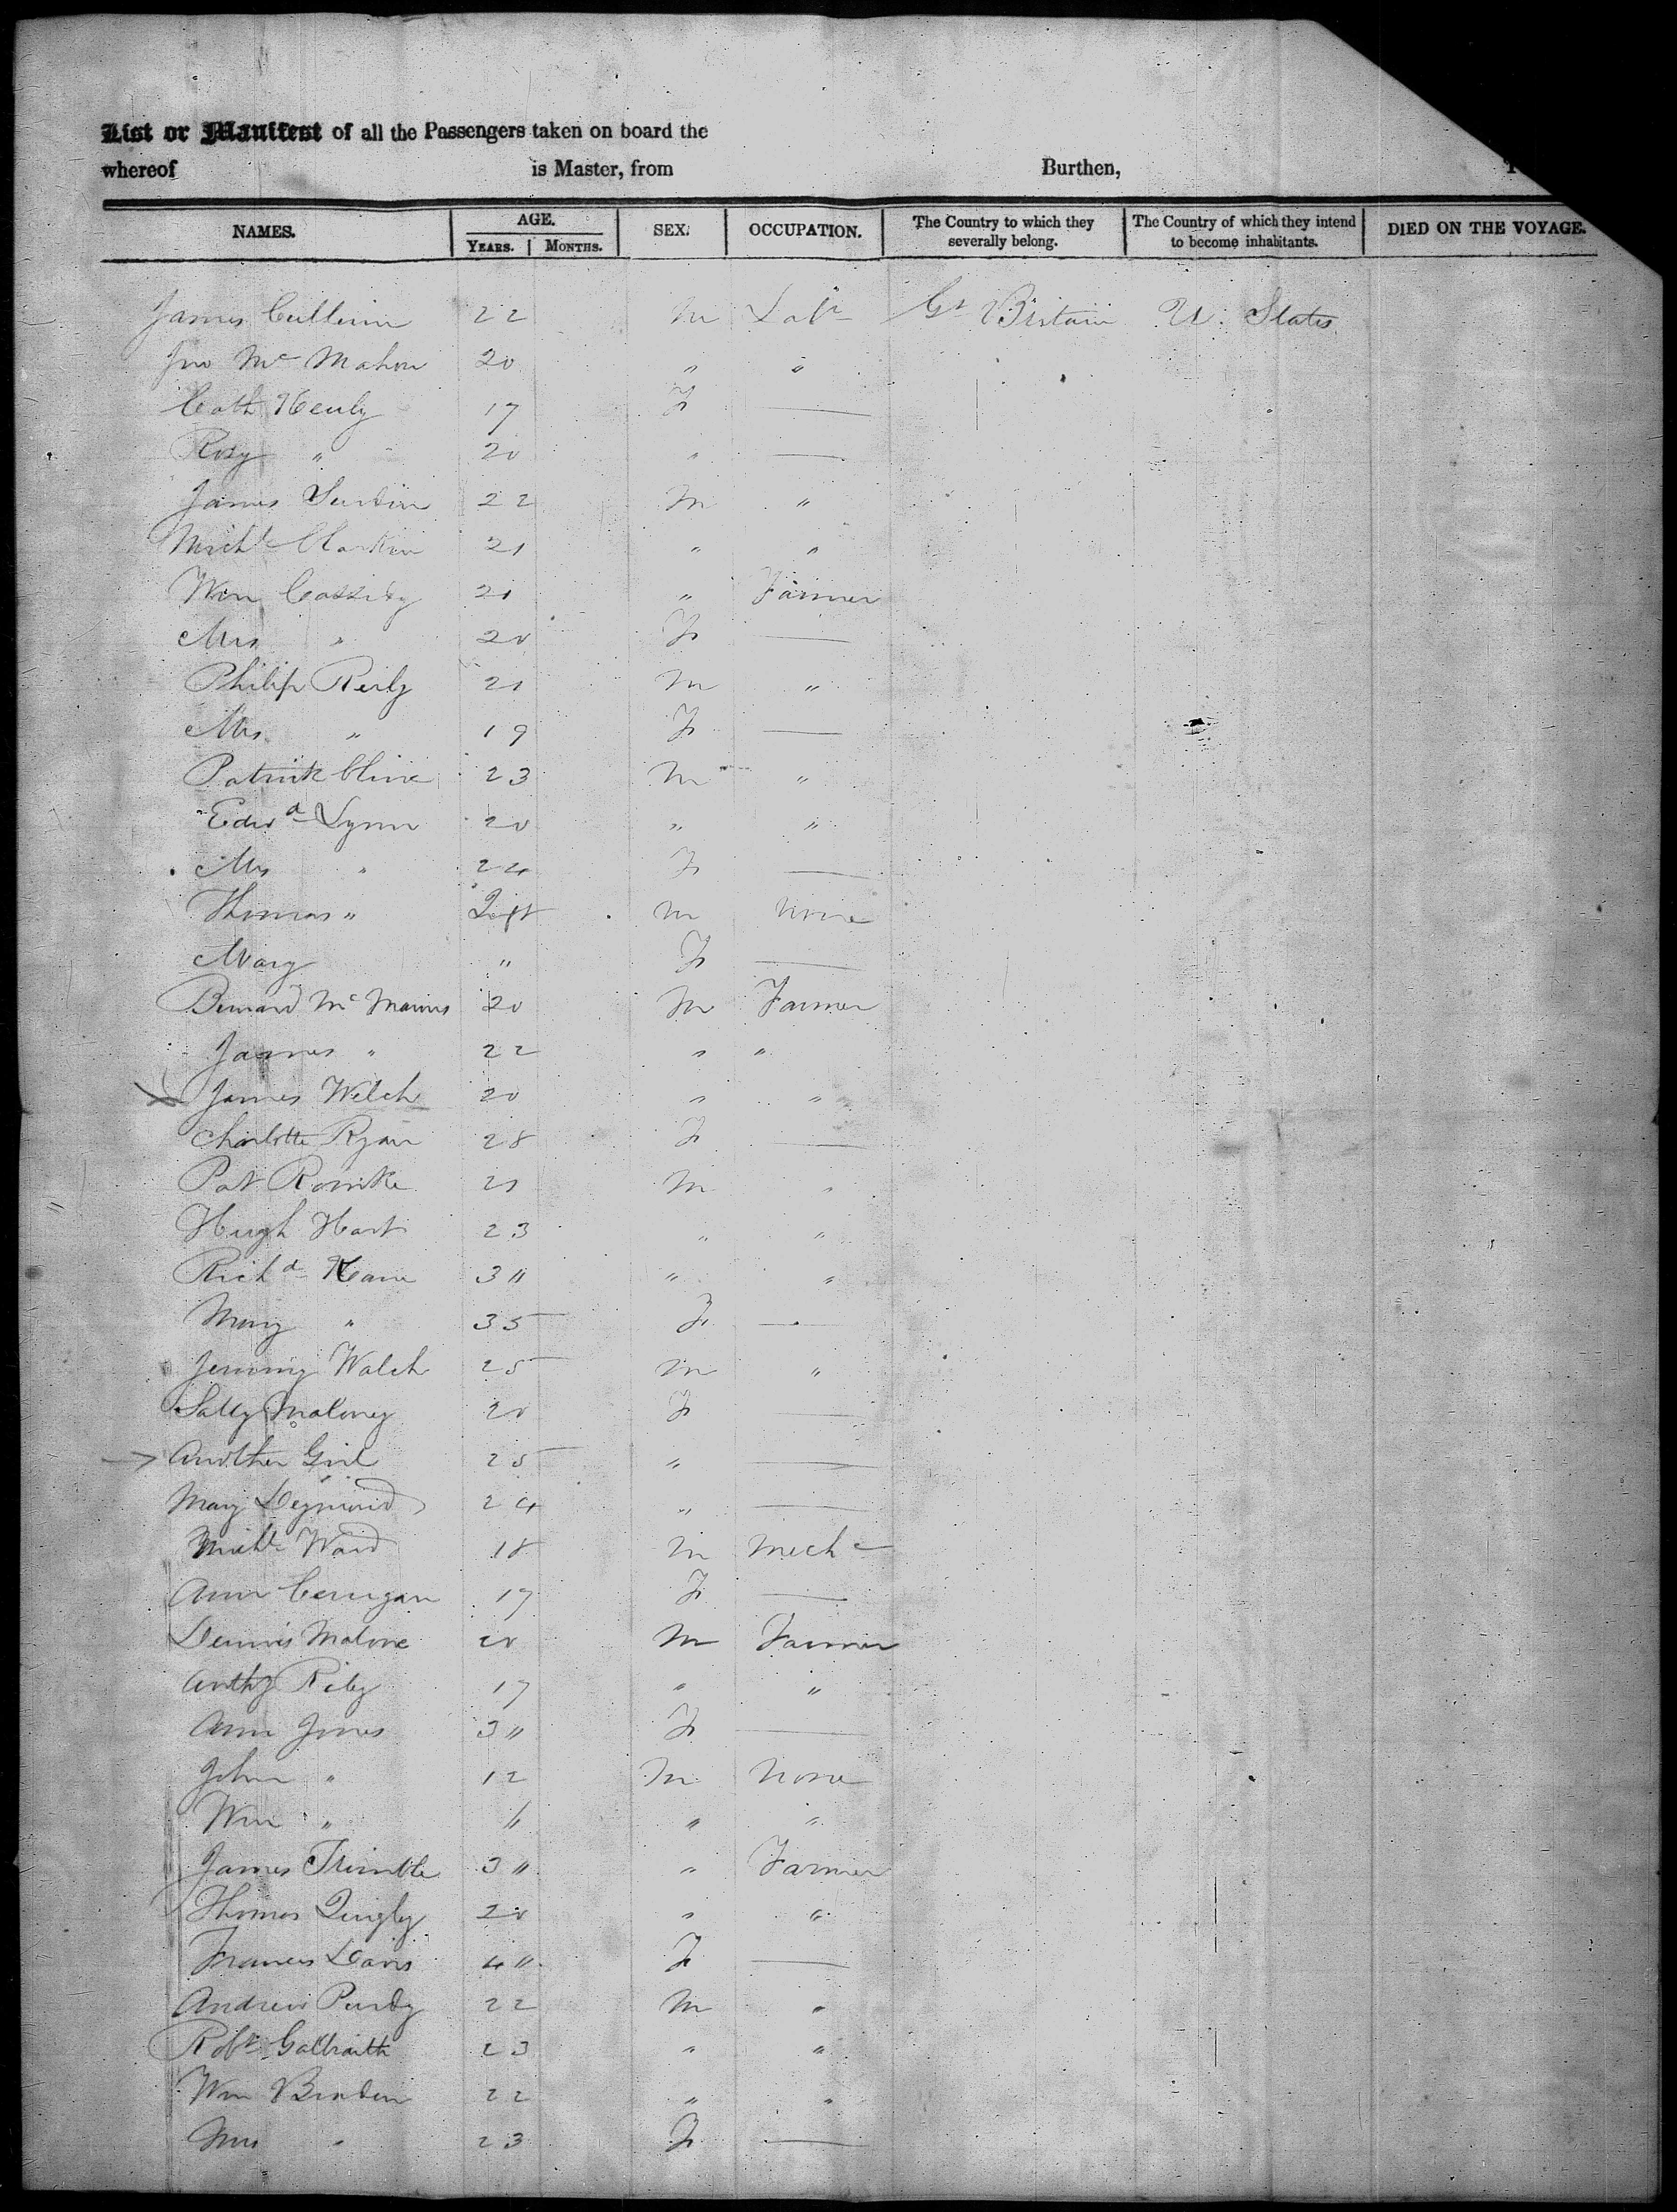 List or Manifest of all the Passengers taken on board the
whereof is Master, from Burthen,
NAMES. AGE. SEX. OCCUPATION. The Country to which they severally belong. The Country of which they intend to become inhabitants. DIED ON THE VOYAGE.
YEARS. MONTHS.
James 22 M Labr Gt Britain U. States
Jno McMahon 20 " "
Cath 17 F —
Rosy " 20 " —
James 22 M "
Michl Clarkin 21 " "
Wm Cassidy 21 " Farmer
Mrs " 20 F —
Philip Reily 21 M "
Mrs " 19 F —
Patrick Cline 23 M "
Edwd Lynn 20 " "
Mrs " 24 F —
Thomas " Inft M None
Mary " F —
Bernard Mc 20 M Farmer
James " 22 " "
James Welch 20 " "
Charlotte Ryan 28 F —
Pat Rourke 21 M "
Hugh Hart 23 " "
Richd Kane 3" " "
Mary " 35 F —
Jemmy Walch 25 M "
Sally Maloney 20 F —
Another Girl 25 " —
Mary 24 " —
Michl Ward 18 M Mechc
Ann Corrigan 17 F —
Dennis Malone 20 M Farmer
Anthy Riley 17 " "
Ann Jones 3" F —
John " 12 M None
Wm " 11 " "
James Trimble 3" " Farmer
Thomas Quigly 20 " "
Frances Davis 4" F —
Andrew Purdy 22 M "
Robt Galbraith 23 " "
Wm 22 " "
Mrs " 23 F —